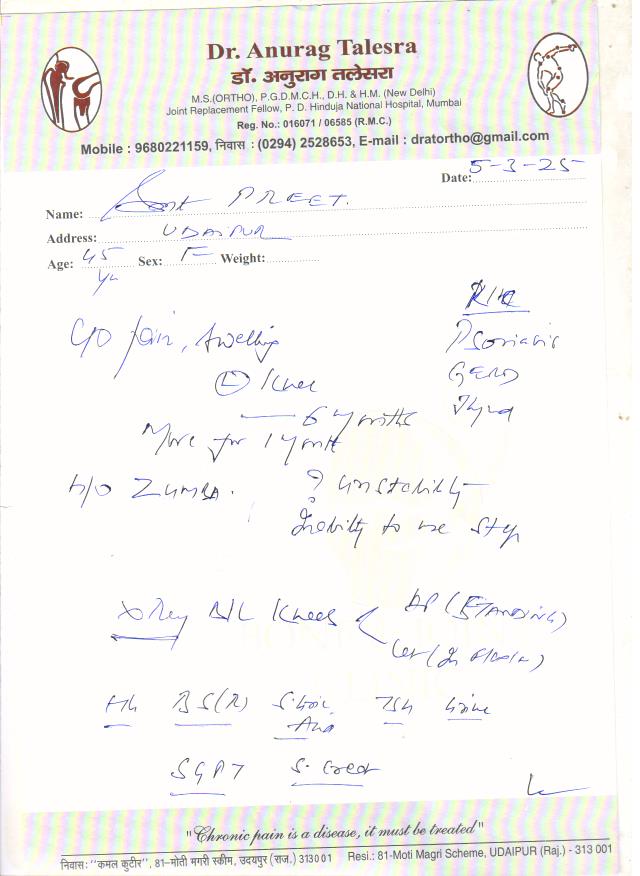 Dr. Anurag Talesra
डॉ. अनुराग तलेसरा
M.S.(ORTHO), P.G.D.M.C.H., D.H. & H.M. (New Delhi)
Joint Replacement Fellow, P. D. Hinduja National Hospital, Mumbai
Reg. No.: 016071 / 06585 (R.M.C.)
Mobile : 9680221159, निवास : (0294) 2528653, E-mail : dratortho@gmail.com
Date: 5-3-25
Name: PREET.
Address: UDAIPUR
Age: 45 yr Sex: F Weight:
K/C/O
C/O pain, swelling Psoriasis
(L) Knee GERD
6 months
More for 1 month
H/O Zumba. ? instability
Inability to use step
X Ray B/L Knees AP (STANDING)
Lat (In
Hb BS(R) S. Uric TSH Urine
Acid
SGPT S. Creat
"Chronic pain is a disease, it must be treated"
निवास: "कमल कुटीर", 81-मोती मगरी स्कीम, उदयपुर (राज.) 313001 Resi.: 81-Moti Magri Scheme, UDAIPUR (Raj.) - 313 001